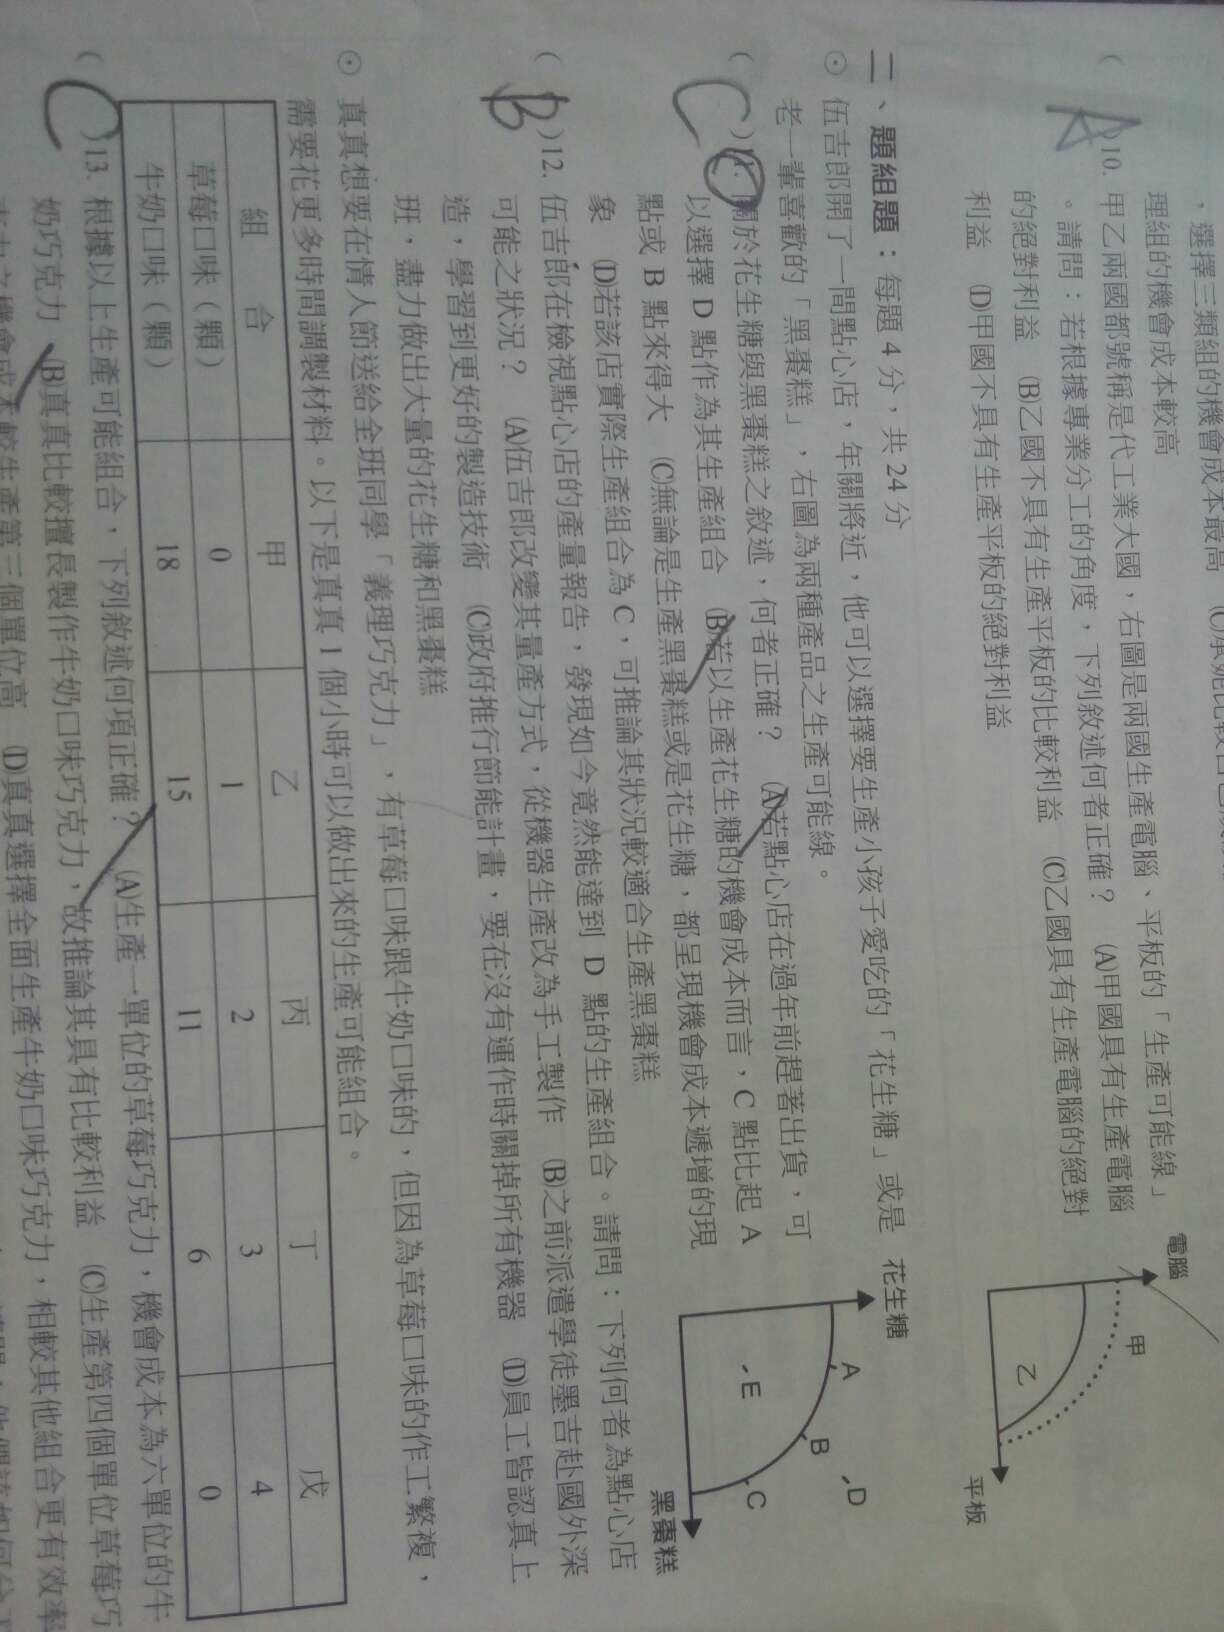 ，選擇三類組的機會成本最高
理組的機會成本較高
( A )10. 甲乙兩國都號稱是代工業大國，右圖是兩國生產電腦、平板的「生產可能線」
。請問：若根據專業分工的角度，下列敘述何者正確？ (A)甲國具有生產電腦
的絕對利益 (B)乙國不具有生產平板的比較利益 (C)乙國具有生產電腦的絕對
利益 (D)甲國不具有生產平板的絕對利益
電腦
甲
乙
平板
二、題組題：每題 4 分，共 24 分
⊙ 伍吉郎開了一間點心店，年關將近，他可以選擇要生產小孩子愛吃的「花生糖」或是
老一輩喜歡的「黑棗糕」，右圖為兩種產品之生產可能線。
( C )11. 關於花生糖與黑棗糕之敘述，何者正確？ (A)若點心店在過年前趕著出貨，可
以選擇 D 點作為其生產組合 (B)若以生產花生糖的機會成本而言，C 點比起 A
點或 B 點來得大 (C)無論是生產黑棗糕或是花生糖，都呈現機會成本遞增的現
象 (D)若該店實際生產組合為 C，可推論其狀況較適合生產黑棗糕
花生糖
A
B
D
E
C
黑棗糕
( B )12. 伍吉郎在檢視點心店的產量報告，發現如今竟然能達到 D 點的生產組合。請問：下列何者為點心店
可能之狀況？ (A)伍吉郎改變其量產方式，從機器生產改為手工製作 (B)之前派遣學徒墨吉赴國外深
造，學習到更好的製造技術 (C)政府推行節能計畫，要在沒有運作時關掉所有機器 (D)員工皆認真上
班，盡力做出大量的花生糖和黑棗糕
⊙ 真真想要在情人節送給全班同學「義理巧克力」，有草莓口味跟牛奶口味的，但因為草莓口味的作工繁複，
需要花更多時間調製材料。以下是真真 1 個小時可以做出來的生產可能組合。
組 合 甲 乙 丙 丁 戊
草莓口味（顆） 0 1 2 3 4
牛奶口味（顆） 18 15 11 6 0
( C )13. 根據以上生產可能組合，下列敘述何項正確？ (A)生產一單位的草莓巧克力，機會成本為六單位的牛
奶巧克力 (B)真真比較擅長製作牛奶口味巧克力，故推論其具有比較利益 (C)生產第四個單位草莓巧
克力之機會成本較生產第三個單位高 (D)真真選擇全面生產牛奶口味巧克力，相較其他組合更有效率